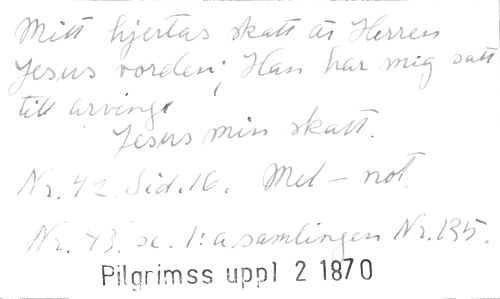 Mitt hjertas skatt är Herren
Jesus vorden; Han har mig satt
till arvinge
Jesus min skatt.
Nr. 42. Sid. 16. Mel – not.
Nr. 43. se. 1:a samlingen Nr. 135.
Pilgrimss uppl 2 1870